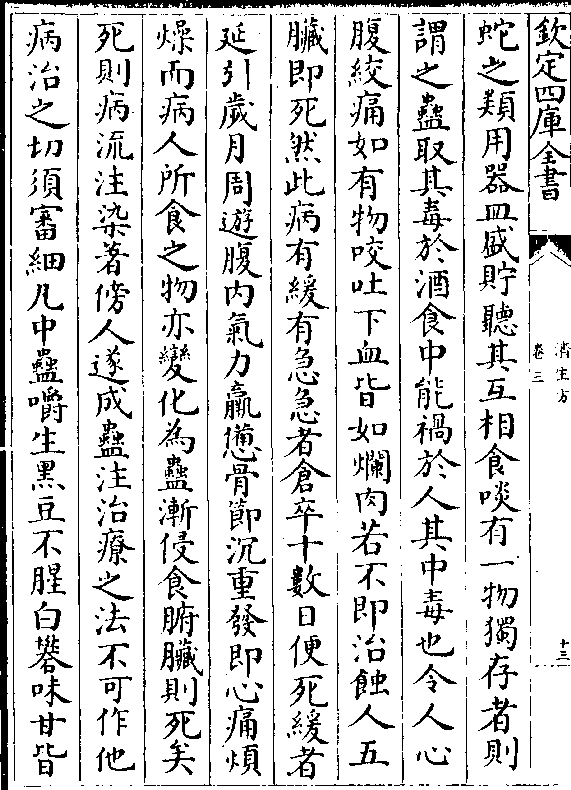 欽定四庫全書
濟生方
卷三
十三
蛇之類用器皿盛貯聽其互相食啖有一物獨存者則
謂之蠱取其毒於酒食中能禍於人其中毒也令人心
腹絞痛如有物咬吐下血皆如爛肉若不即治蝕人五
臟即死然此病有緩有急急者倉卒十數日便死緩者
延引歲月周遊腹内氣力羸憊骨節沉重發即心痛煩
燥而病人所食之物亦變化為蠱漸侵食腑臟則死矣
死則病流注染著傍人遂成蠱注治療之法不可作他
病治之切須審細凡中蠱嚼生黑豆不腥白礬味甘皆